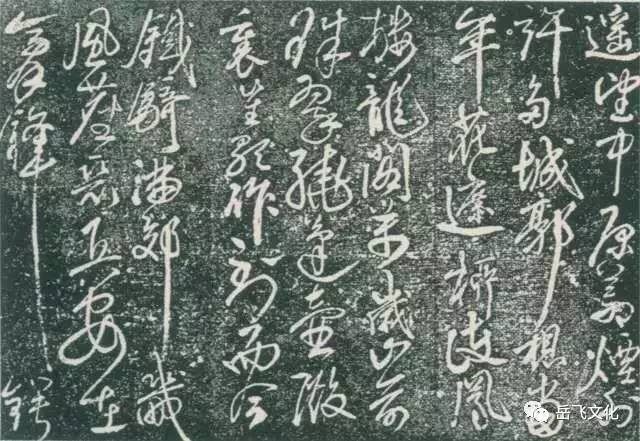 遥望中原荒煙外
許多城郭想當
年花遮柳護鳳
樓龍閣萬歲山前
珠翠繞蓬壺殿
裏笙歌作到而今
鐵騎滿郊畿
風塵惡兵安在
膏鋒鍔
岳飞文化